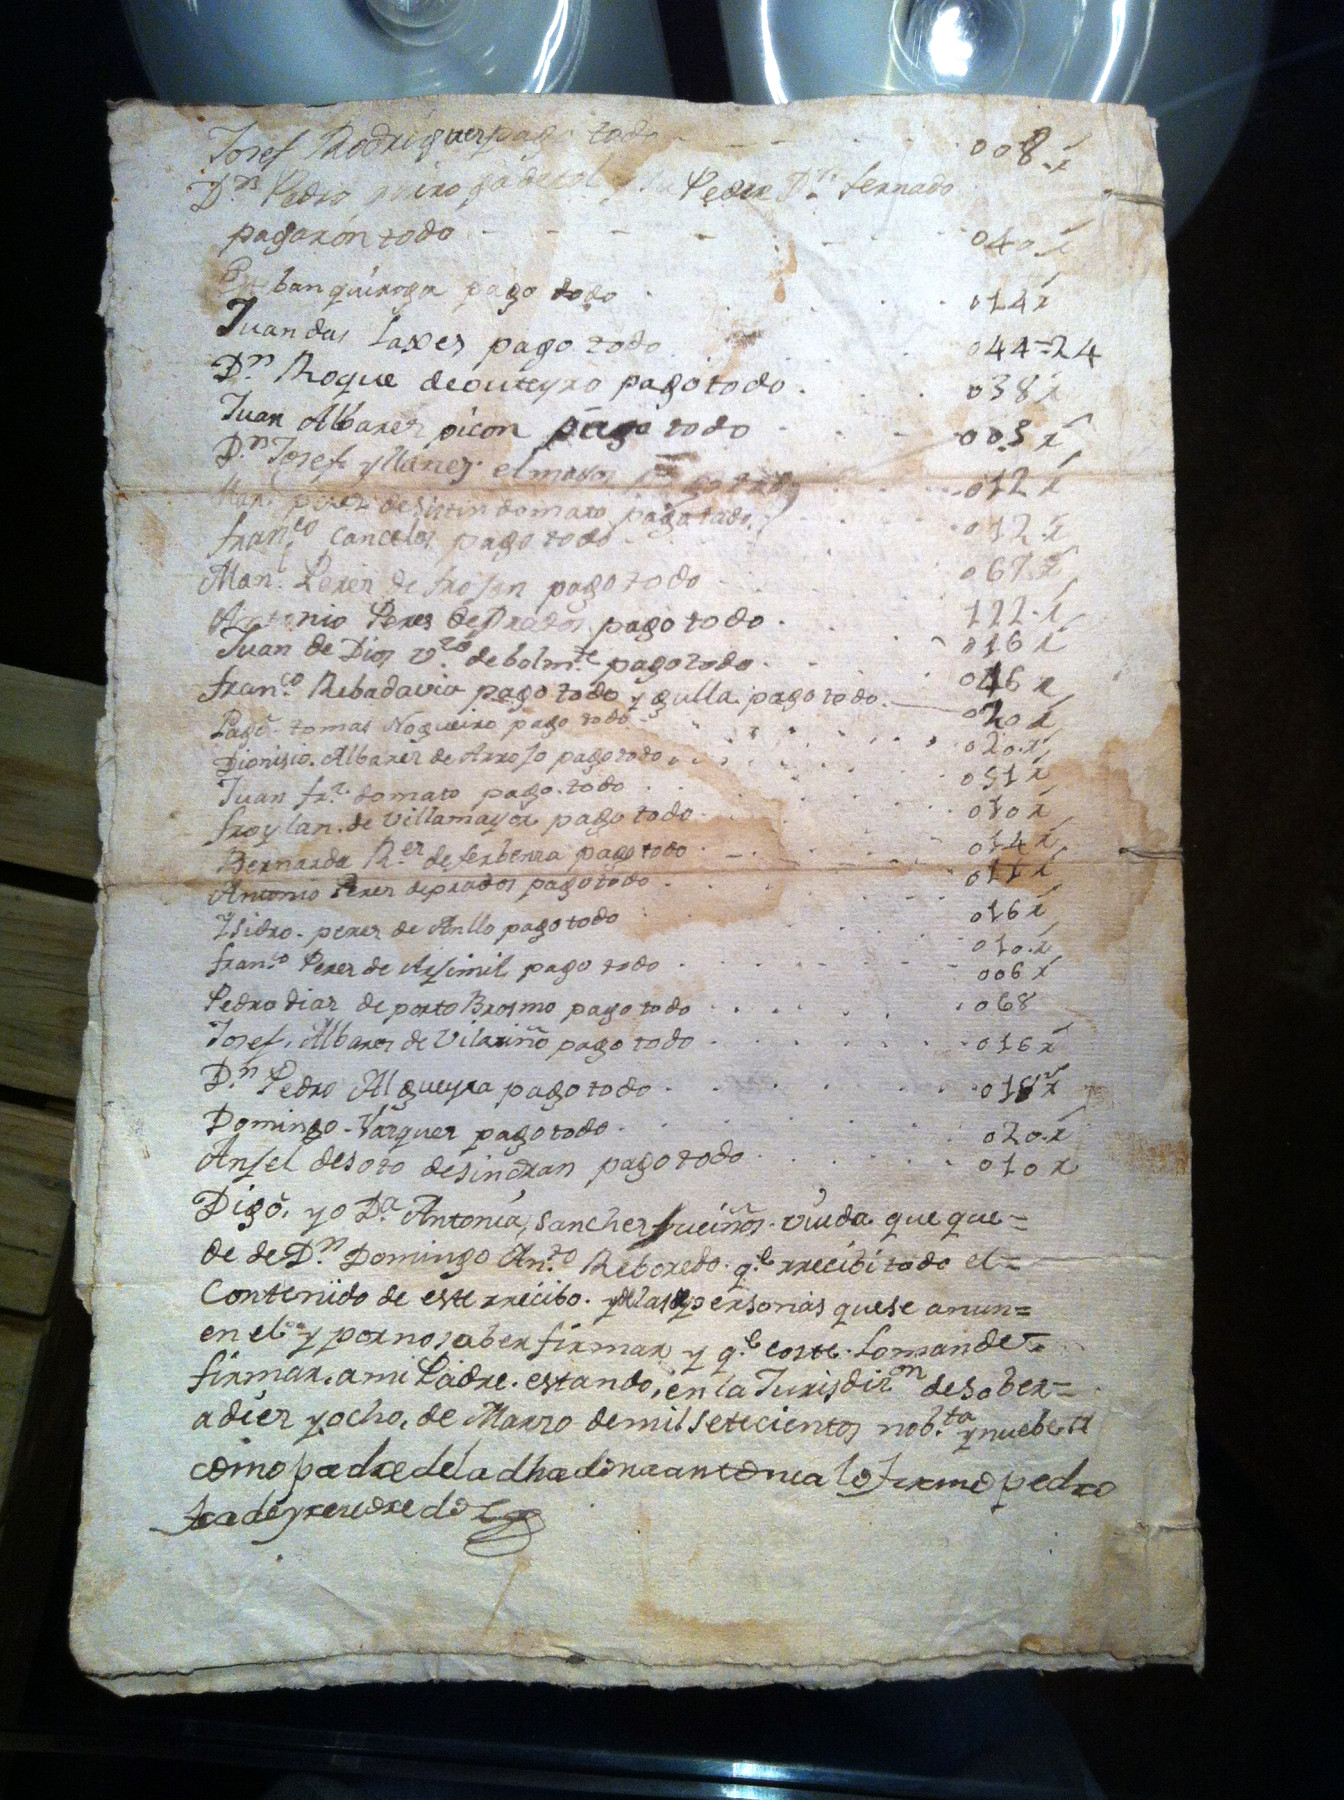 Josef Rodriguez pago todo - - - . . 008 r
Dn Pedro quiroga Pedro Dn fernado
pagaron todo - - - - - . . 040 r
ban quiroga pago todo . . . 014 r
Juan das Laxes pago todo . . . 044=24
Dn Roque de outeyro pago todo . . . 038 r
Juan Albarez picon pago todo . . - 003 r
Dn Josef yllanes el mayor pago todo . . 012 r
Man.l perez desistin domato pago todo . . . 012 r
fran.co Cancelos pago todo . . . 067 r
Man.l Perez de pago todo . . . 122 r
Antonio Peres de Prados pago todo . . . 016 r
Juan de Dios v.zo debolm.te pago todo . . . 046 r
fran.co Rebadavia pago todo y gulla pago todo. 020 r
Pago tomas Nogueiro pago todo . . . 020 r
Dionisio Albarez de Arrojo pago todo . . . 051 r
Juan fr.z domato pago todo . . . 010 r
froylan de Villamayor pago todo . . . 014 r
Bernarda R.ez de ferbenza pago todo . . . 011 r
Antonio Perez deprados pago todo . . . 016 r
Ysidro perez de Anllo pago todo . . . 010 r
fran.co Perez de Arximil pago todo . . . 006 r
Pedro diaz de porto Brosmo pago todo . . . 068
Josef Albarez de Vilariño pago todo . . . 016 r
D.n Pedro Algueyra pago todo . . . 018 r
Domingo Vazquez pago todo . . . 020 r
Anjel desoto desindran pago todo . . . 010 r
Digo, yo D.a Antonia, Sanchez viuda que que=
de de D.n Domingo An.to Reboredo q.e rrecibi todo el=
Contenido de este rrecibo. y de las personas que se anun=
en el y por no saber firmar y q.e coste. lo mande
firmar, a mi Padre. estando, en la Jurisdic.on de sober=
a diez y ocho, de Marzo de mil setecientos nob.ta y nuebe
como padre de la dha dina antonia lo firmo pedro